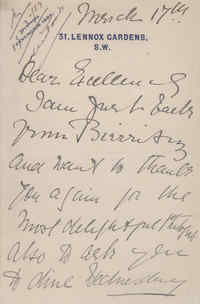 March 17th
31. LENNOX GARDENS,
S.W.
Dear Excellency
I am just back
from Biarritz
and want to thank
you again for the
most delightful
also to ask you
to dine Wednesday